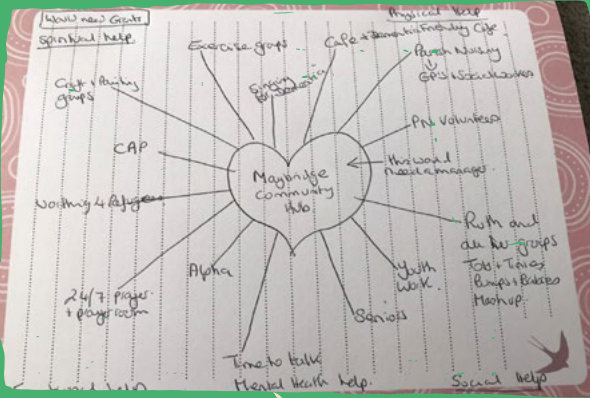 Would need Grants
Spiritual help
Physical Help
Exercise groups
Cafe + Dementia Friendly Cafe
Parish Nursing
GP's + Social workers
Craft + Painting
groups
Singing
for Dementia
PN Volunteers
CAP
this would
need a manager.
Maybridge
Community
Hub.
Worthing 4 Refugees
Ruth and
all her groups
Tots + Tinies
Bumps + Babies
Mashup.
Alpha
Youth
Work.
24/7 prayer
+ prayer room
Seniors
Time to talk
Mental Health help.
help
Social Help